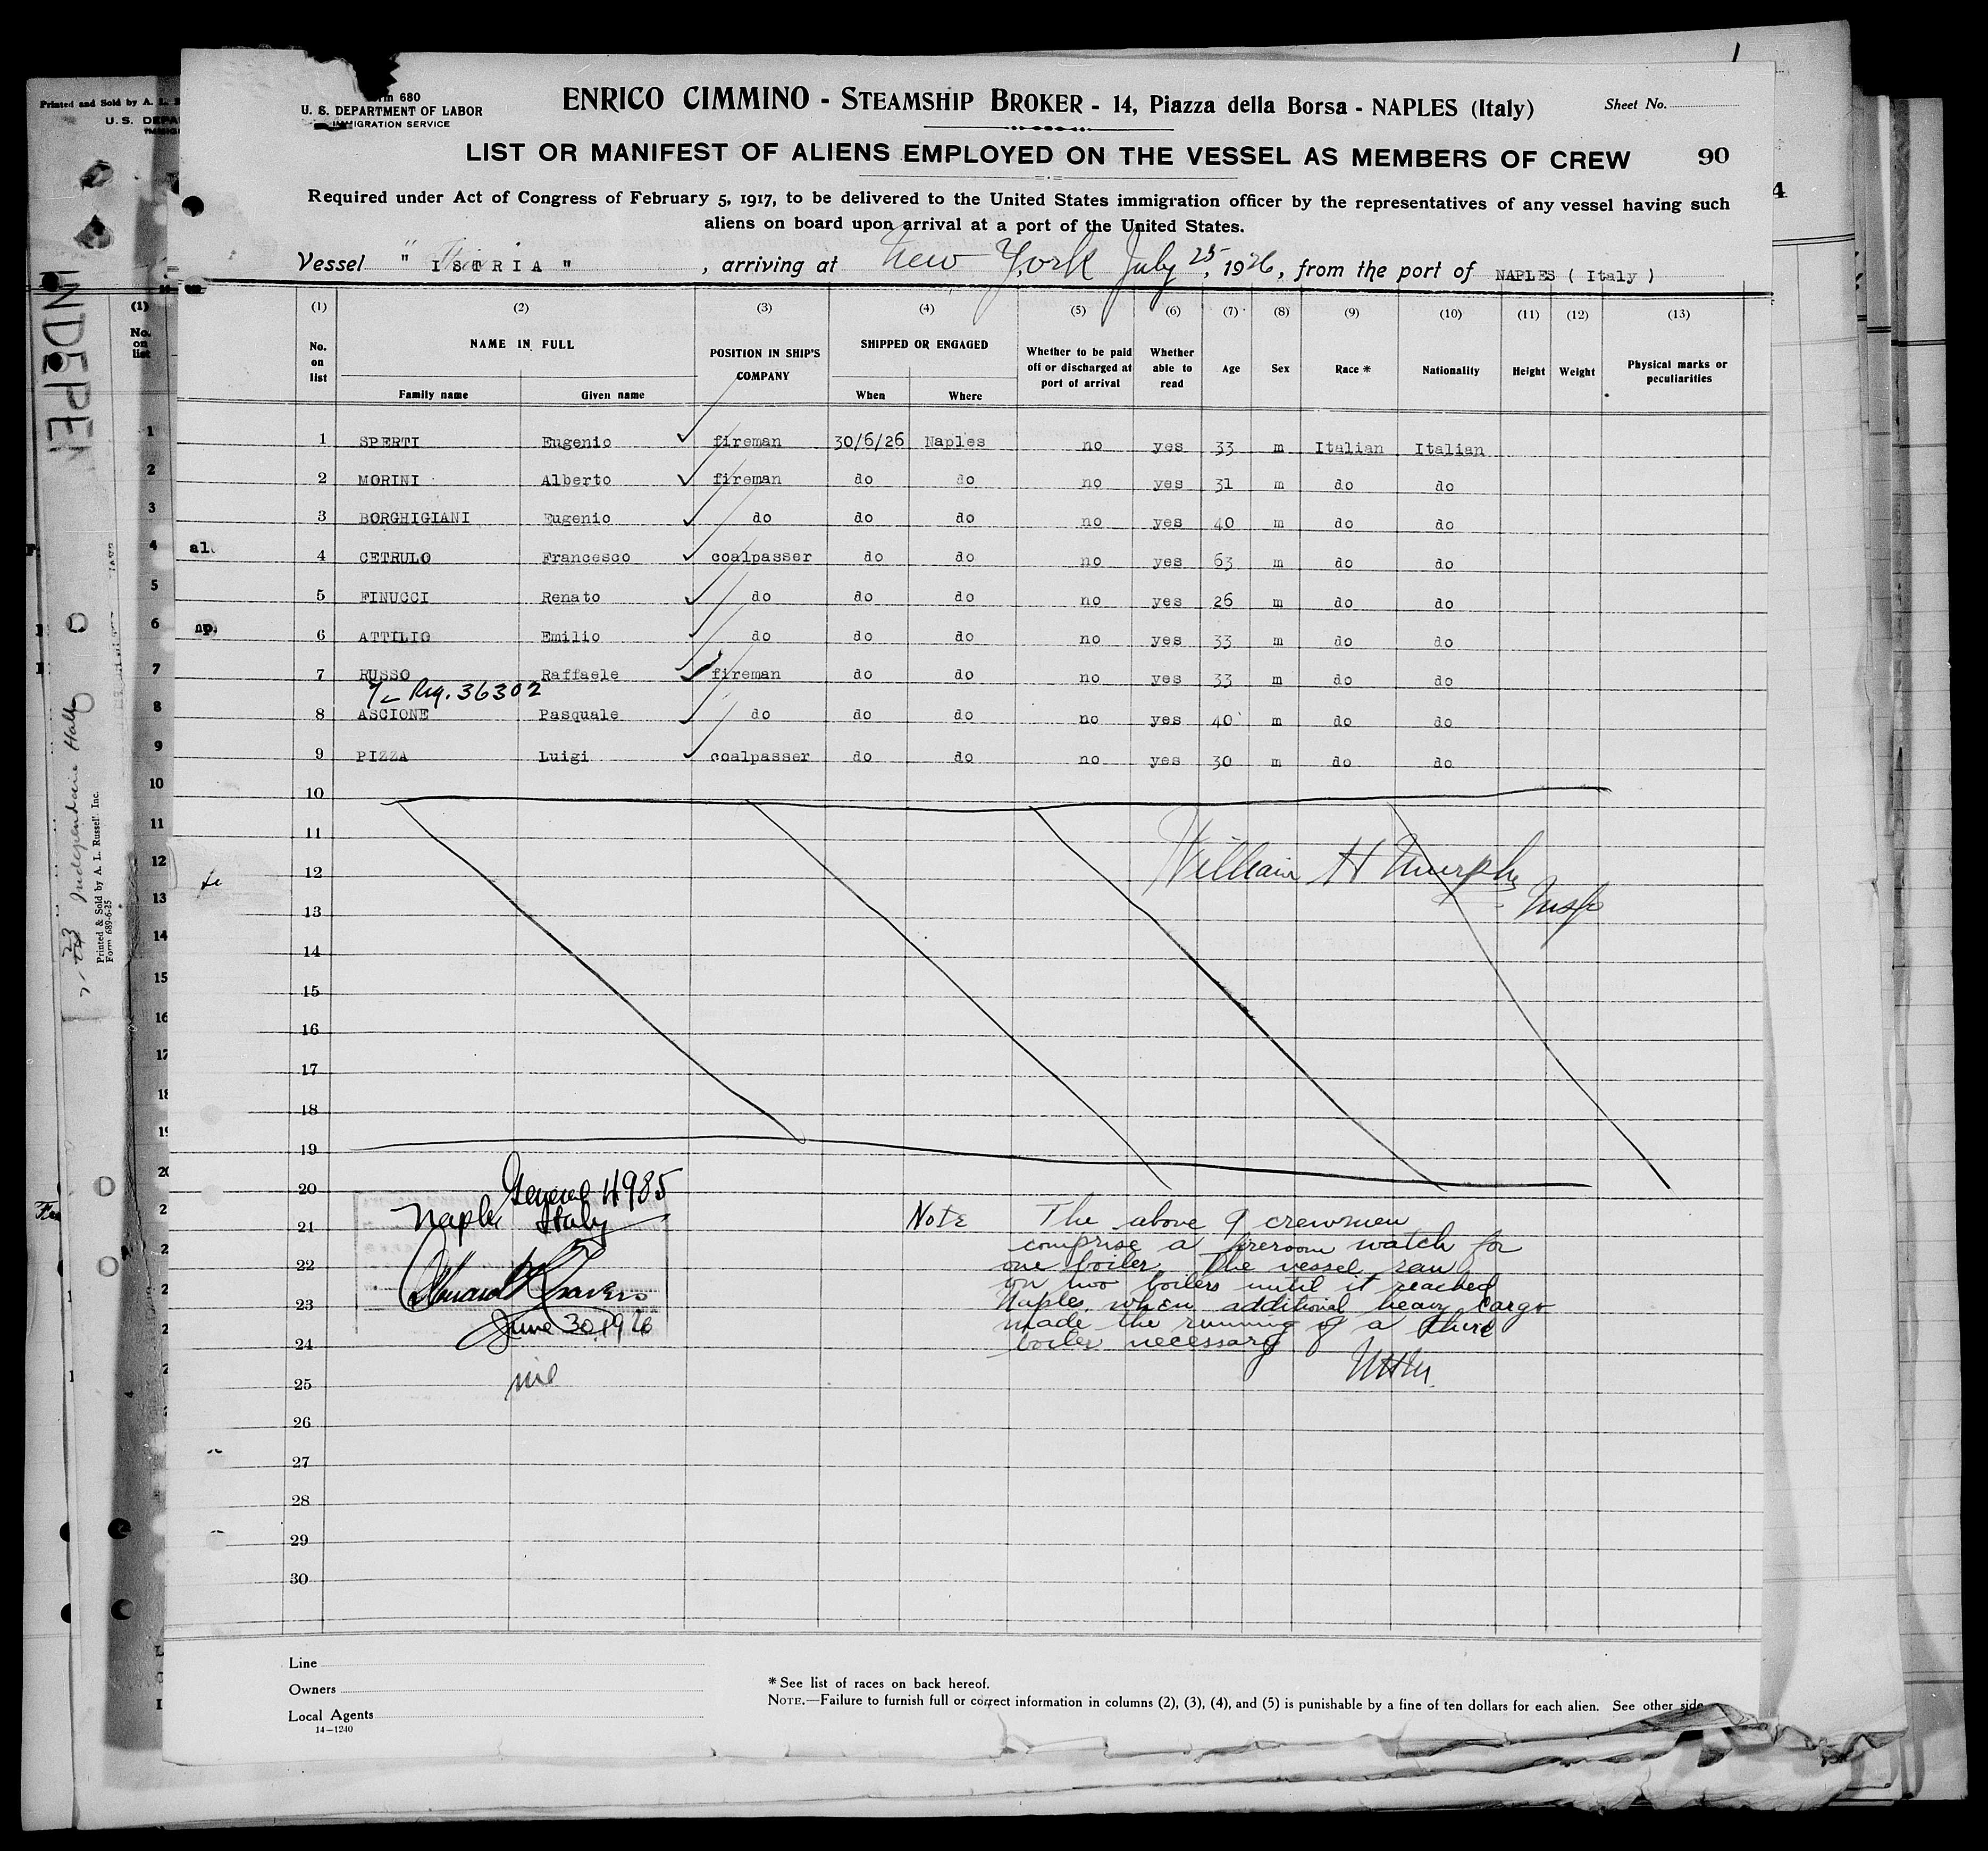 Form 680
U. S. DEPARTMENT OF LABOR
IMMIGRATION SERVICE
ENRICO CIMMINO - STEAMSHIP BROKER - 14, Piazza della Borsa - NAPLES (Italy)
Sheet No.
LIST OR MANIFEST OF ALIENS EMPLOYED ON THE VESSEL AS MEMBERS OF CREW 90
Required under Act of Congress of February 5, 1917, to be delivered to the United States immigration officer by the representatives of any vessel having such
aliens on board upon arrival at a port of the United States.
Vessel " ISTRIA " , arriving at New York July 25, 1926, from the port of NAPLES ( Italy )
(1) (2) (3) (4) (5) (6) (7) (8) (9) (10) (11) (12) (13)
No. on list NAME IN FULL POSITION IN SHIP'S COMPANY SHIPPED OR ENGAGED Whether to be paid off or discharged at port of arrival Whether able to read Age Sex Race * Nationality Height Weight Physical marks or peculiarities
Family name Given name When Where
1 SPERTI Eugenio fireman 30/6/26 Naples no yes 33 m Italian Italian
2 MORINI Alberto fireman do do no yes 31 m do do
3 BORGHIGIANI Eugenio do do do no yes 40 m do do
4 CETRULO Francesco coalpasser do do no yes 63 m do do
5 FINUCCI Renato do do do no yes 26 m do do
6 ATTILIO Emilio do do do no yes 33 m do do
7 RUSSO Raffaele fireman do do no yes 33 m do do
Reg. 36302
8 ASCIONE Pasquale do do do no yes 40 m do do
9 PIZZA Luigi coalpasser do do no yes 30 m do do
10
11
12 William H Murphy
13 Insp
14
15
16
17
18
19
20 General 4985
21 Naples Italy
22
23
24 June 30, 1926
25 nil
26
27
28
29
30
Note The above 9 crewmen
comprise a fireroom watch for
one boiler. The vessel ran
on two boilers until it reached
Naples when additional heavy cargo
made the running of a third
boiler necessary
WHM
Line
Owners
Local Agents
14—1240
* See list of races on back hereof.
NOTE.—Failure to furnish full or correct information in columns (2), (3), (4), and (5) is punishable by a fine of ten dollars for each alien. See other side
Printed and Sold by A. L.
U. S.
INDEPEN
Independence Hall
Printed & Sold by A. L. Russell Inc.
Form 689-6-25
(1)
No. on list
1
2
3
4
5
6
7
8
9
10
11
12
13
14
15
16
17
18